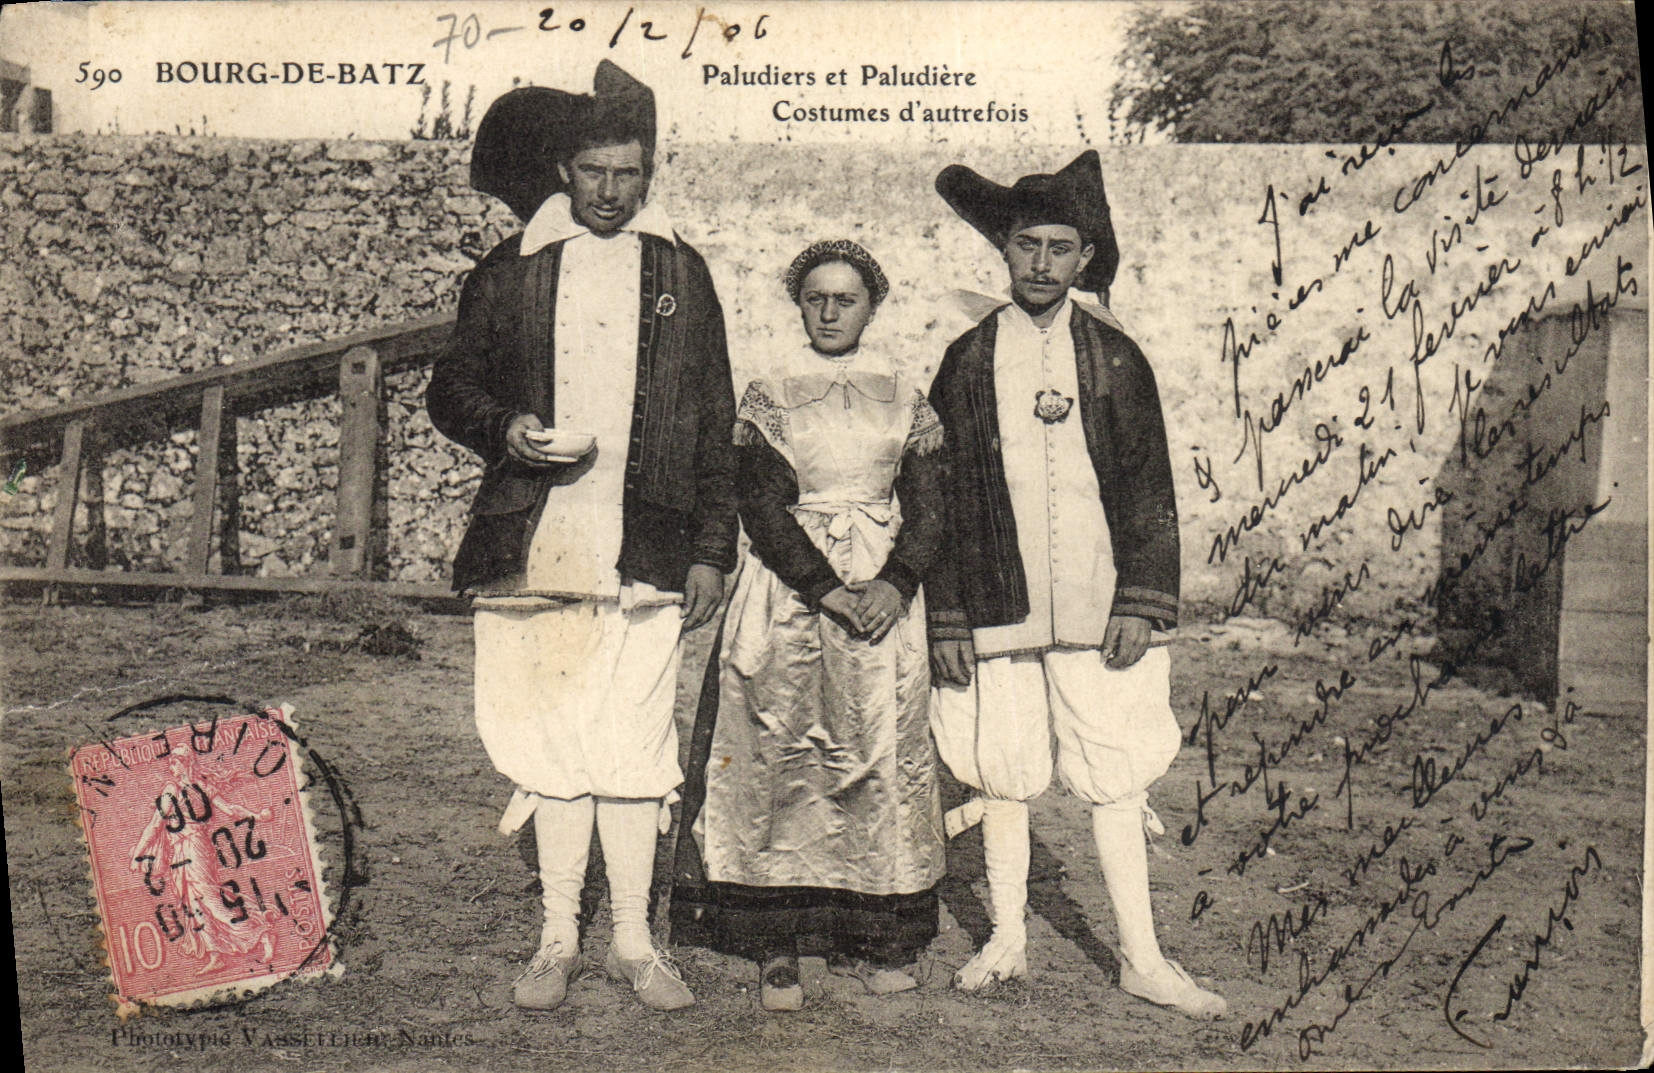 70 - 20/2/06
590 BOURG-DE-BATZ
Paludiers et Paludière
Costumes d'autrefois
J'ai reçu les
pièces me concernant,
& passerai la visite demain
mercredi 21 fevrier à 8 h. 1/2
du matin, je vous écrirai
pour vous dire les résultats
et repondre en même temps
à votre prochaine lettre.
Mes meilleures
embrassades à vous
à toute
RÉPUBLIQUE FRANÇAISE
10
POSTES
LOIRE INF
15 30
20 - 2
06
Phototypie VASSELLIER, Nantes